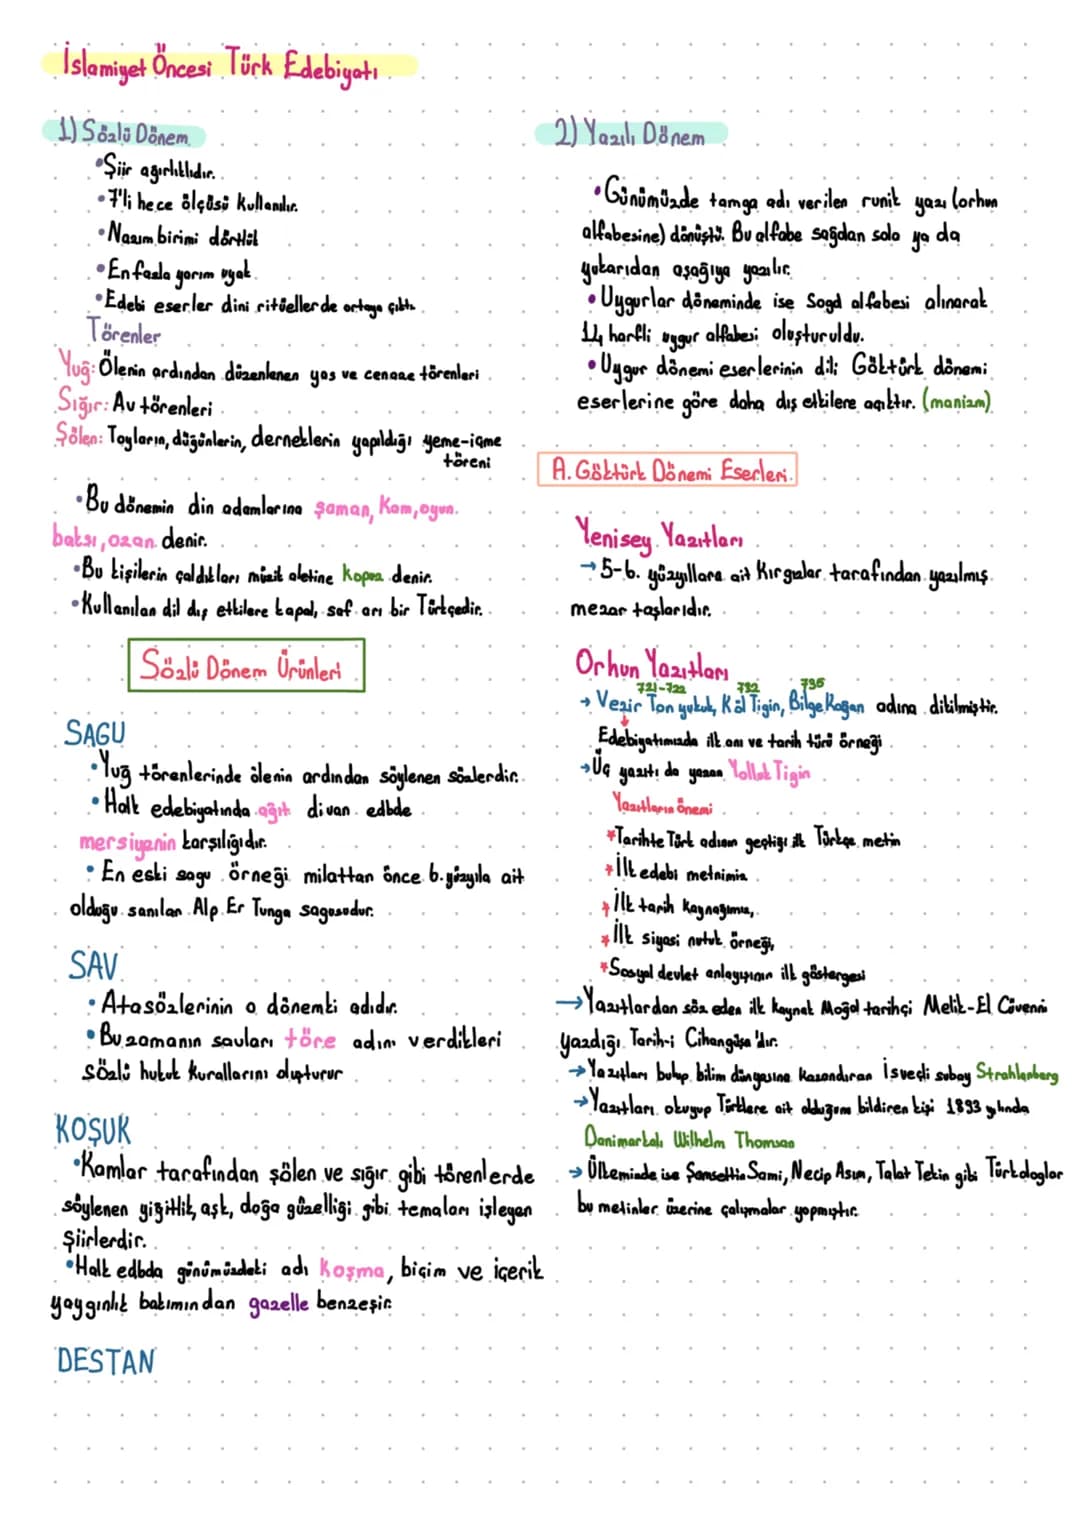 İslamiyet Öncesi Türk Edebiyatı
1) Sözlü Dönem
•Şiir ağırlıklıdır.
•7'li hece ölçüsü kullanılır.
•Nazım birimi dörtlük
•En fazla yarım uyak
•Edebi eserler dini ritüellerde ortaya çıktı.
Törenler
Yuğ: Ölenin ardından düzenlenen yas ve cenaze törenleri
Sığır: Av törenleri
Şölen: Toyların, düğünlerin, derneklerin yapıldığı yeme-içme
töreni
•Bu dönemin din adamlarına şaman, kam, oyun.
baksı, ozan denir.
•Bu kişilerin çaldıkları müzik aletine kopuz denir.
•Kullanılan dil dış etkilere kapalı, saf arı bir Türkçedir.
Sözlü Dönem Ürünleri
SAGU
•Yuğ törenlerinde ölenin ardından söylenen sözlerdir.
•Halk edebiyatında ağıt divan edbde
mersiyenin karşılığıdır.
•En eski sagu örneği milattan önce 6.yüzyıla ait
olduğu sanılan Alp Er Tunga sagusudur.
SAV
•Atasözlerinin o dönemki adıdır.
•Bu zamanın savları töre adını verdikleri
sözlü hukuk kurallarını oluşturur
KOŞUK
•Kamlar tarafından şölen ve sığır gibi törenlerde
söylenen yiğitlik, aşk, doğa güzelliği gibi temaları işleyen
şiirlerdir.
•Halk edbda günümüzdeki adı koşma, biçim ve içerik
yaygınlık bakımından gazelle benzeşir.
DESTAN
2) Yazılı Dönem
•Günümüzde tamga adı verilen runik yazı (orhun
alfabesine) dönüştü. Bu alfabe sağdan sola ya da
yukarıdan aşağıya yazılır.
•Uygurlar döneminde ise Sogd alfabesi alınarak
14 harfli uygur alfabesi oluşturuldu.
•Uygur dönemi eserlerinin dili Göktürk dönemi
eserlerine göre daha dış etkilere açıktır. (manizm)
A. Göktürk Dönemi Eserleri
Yenisey Yazıtları
→5-6. yüzyıllara ait Kırgızlar tarafından yazılmış
mezar taşlarıdır.
Orhun Yazıtları
721-722 732 735
→Vezir Tonyukuk, Kül Tigin, Bilge Kağan adına dikilmiştir.
Edebiyatımızda ilk anı ve tarih türü örneği
→Üç yazıtı da yazan Yolluk Tigin
Yazıtların önemi
*Tarihte Türk adının geçtiği ilk Türkçe metin
*İlk edebi metnimiz
*İlk tarih kaynağımız,
*İlk siyasi nutuk örneği,
*Sosyal devlet anlayışının ilk göstergesi
→Yazıtlardan söz eden ilk kaynak Moğol tarihçi Melik-El Cüveyni
yazdığı Tarih-i Cihangüşa'dır.
→Yazıtları bulup bilim dünyasına kazandıran İsveçli subay Strahlenberg
→Yazıtları okuyup Türklere ait olduğunu bildiren kişi 1893 yılında
Danimarkalı Wilhelm Thomsan
→Ülkeminde ise Şemsettin Sami, Necip Asım, Talat Tekin gibi Türkdoglar
bu metinler üzerine çalışmalar yapmıştır.